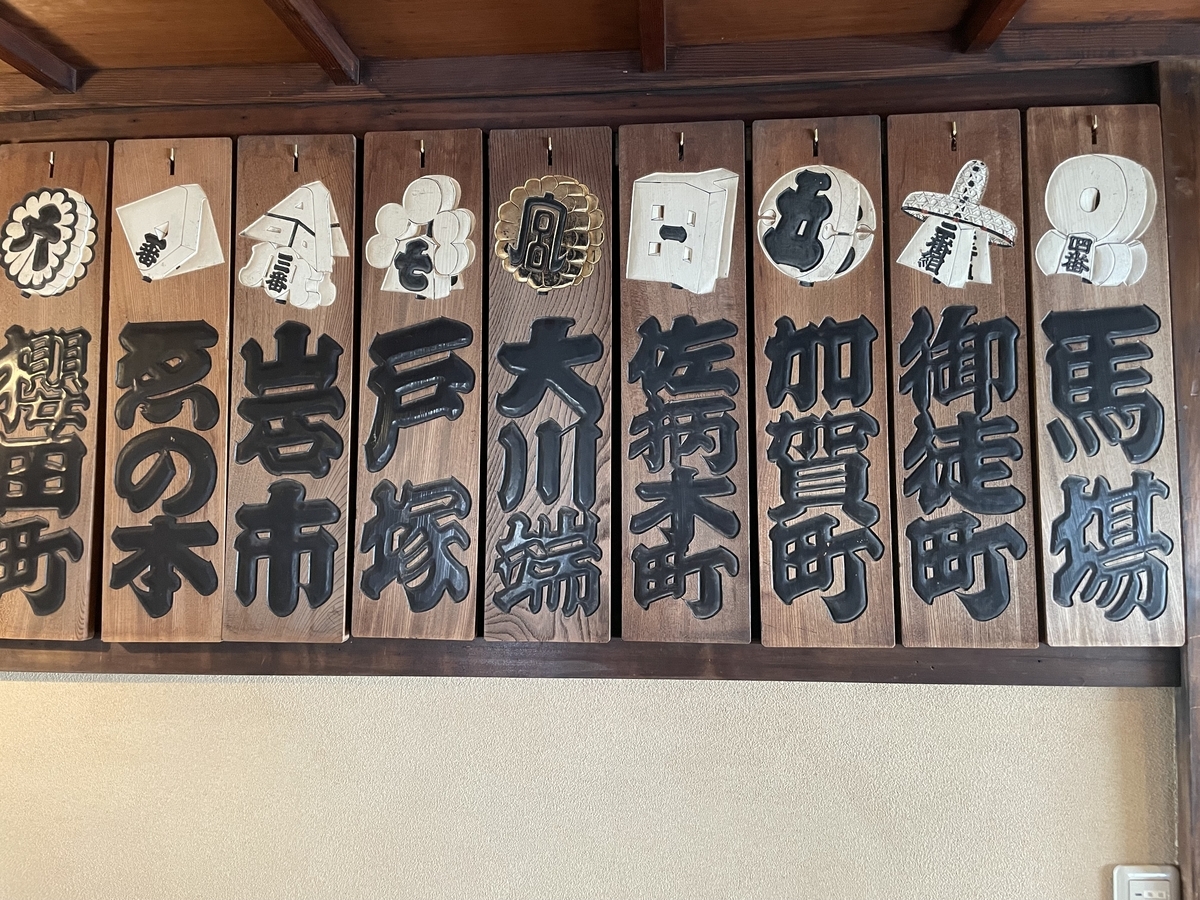 四番
馬場
二番組
御徒町
加賀町
佐柄木町
大川端
戸塚
三番
岩市
一番
ゑの本
櫻田町